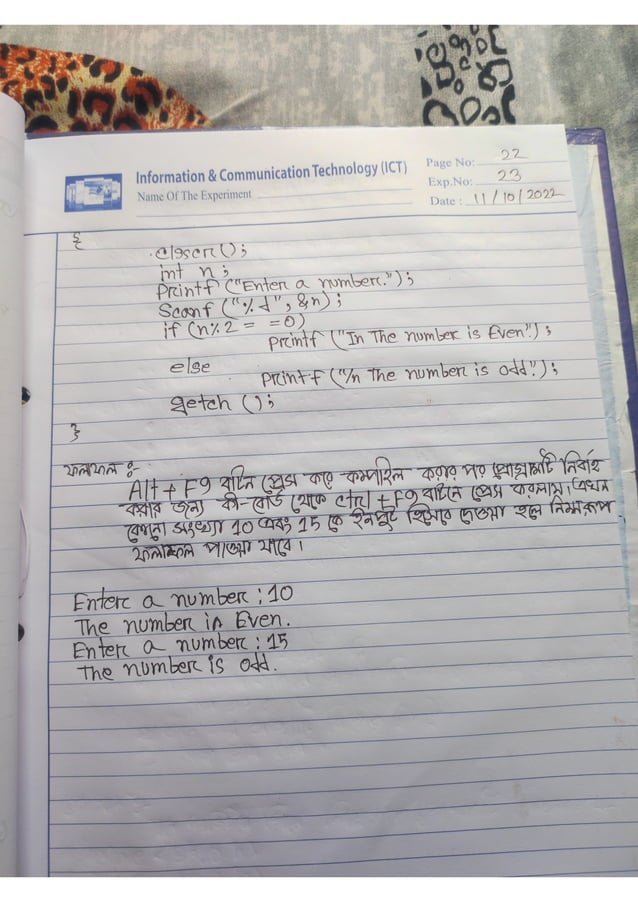 Information & Communication Technology (ICT)
Page No: 22
Name Of The Experiment
Exp.No: 23
Date: 11/10/2022
{
clscr();
int n;
Printf ("Enter a number.");
Scanf ("%d", &n);
if (n%2 = =0)
printf ("In The number is Even.");
else
printf ("/n The number is odd.");
getch ();
}
ফলাফল ঃ-
Alt + F9 বাটন প্রেস করে কম্পাইল করার পর প্রোগ্রামটি নির্বাহ
করার জন্য কী-বোর্ড থেকে ctrl + F9 বাটনে প্রেস করলাম। এখন
কোনো সংখ্যা 10 এবং 15 কে ইনপুট হিসেবে দেওয়া হলে নিম্নরূপ
ফলাফল পাওয়া যাবে।
Enter a number : 10
The number in Even.
Enter a number : 15
The number is odd.